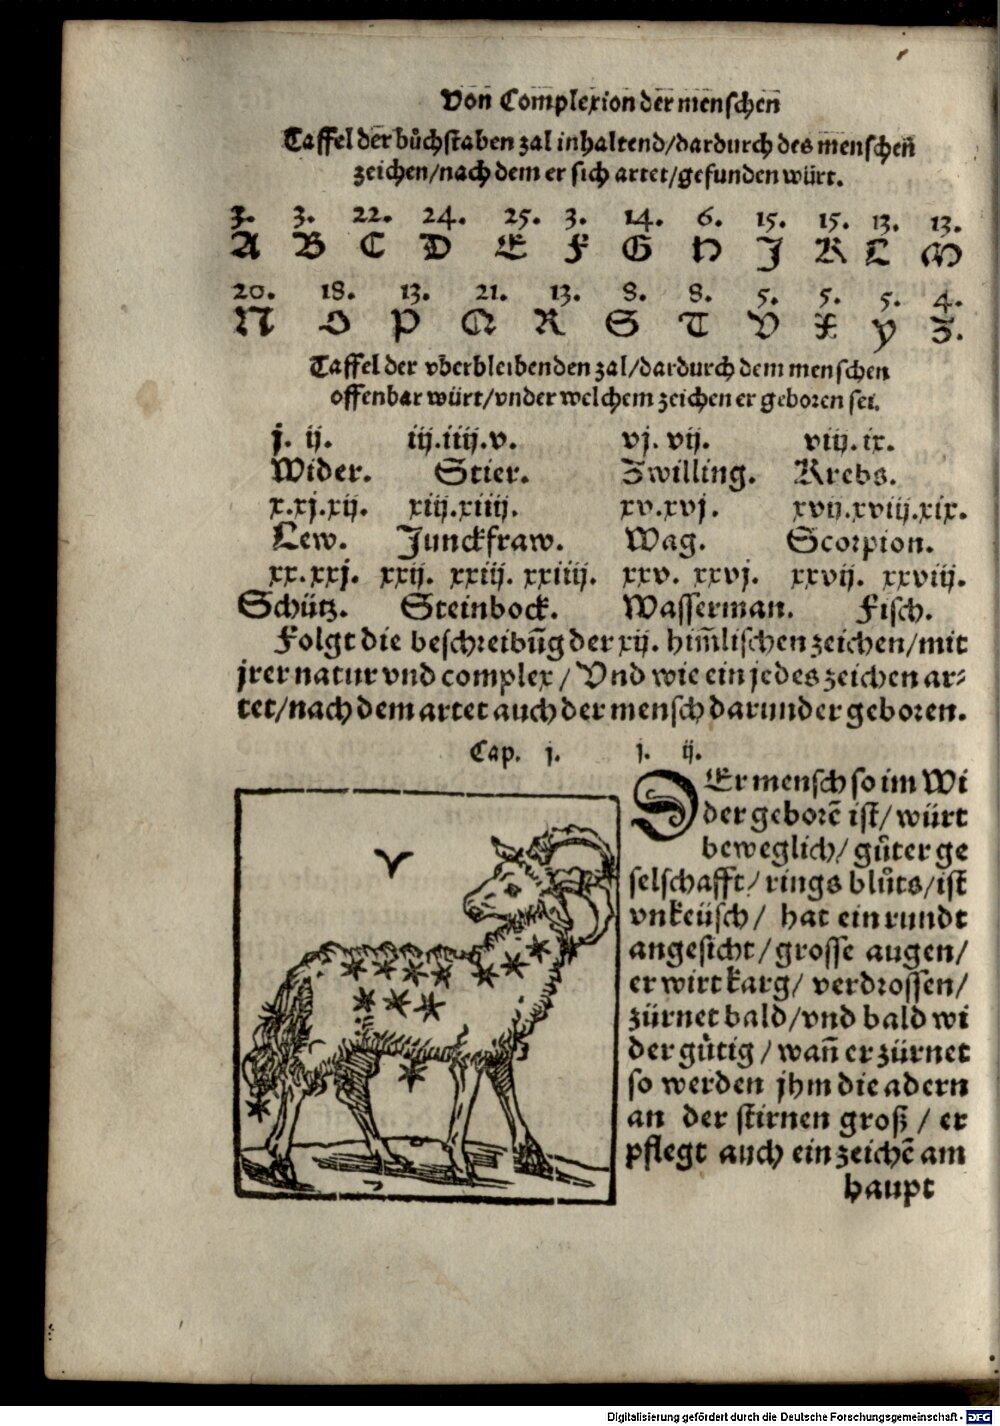 Von Complexion der menschen
Taffel der bůchstaben zal inhaltend/dardurch des menschen
zeichen/nach dem er sich artet/gefunden würt.
3. 3. 22. 24. 25. 3. 14. 6. 15. 15. 13. 13.
A B C D E F G H J K L M
20. 18. 13. 21. 13. 8. 8. 5. 5. 5. 4.
N O P Q R S T V X Y Z.
Taffel der vberbleibenden zal/dardurch dem menschen
offenbar würt/vnder welchem zeichen er geboren sei.
j. ij. iij.iiij.v. vj. vij. viij.ix.
Wider. Stier. Zwilling. Krebs.
x.xj.xij. xiij.xiiij. xv.xvj. xvij.xviij.xix.
Lew. Junckfraw. Wag. Scorpion.
xx.xxj. xxij. xxiij. xxiiij. xxv. xxvj. xxvij. xxviij.
Schütz. Steinbock. Wasserman. Fisch.
Folgt die beschreibūg der xij. him̄lischen zeichen/mit
jrer natur vnd complex/Vnd wie ein jedes zeichen ar-
tet/nach dem artet auch der mensch darunder geboren.
Cap. j. j. ij.
DEr mensch so im Wi
der geborē ist/würt
beweglich/gůter ge
selschafft/rings blůts/ist
vnkeüsch/ hat ein rundt
angesicht/grosse augen/
er wirt karg/ verdrossen/
zürnet bald/vnd bald wi
der gůtig/wan̄ er zürnet
so werden jhm die adern
an der stirnen groß/er
pflegt auch ein zeichē am
haupt
Digitalisierung gefördert durch die Deutsche Forschungsgemeinschaft - DFG